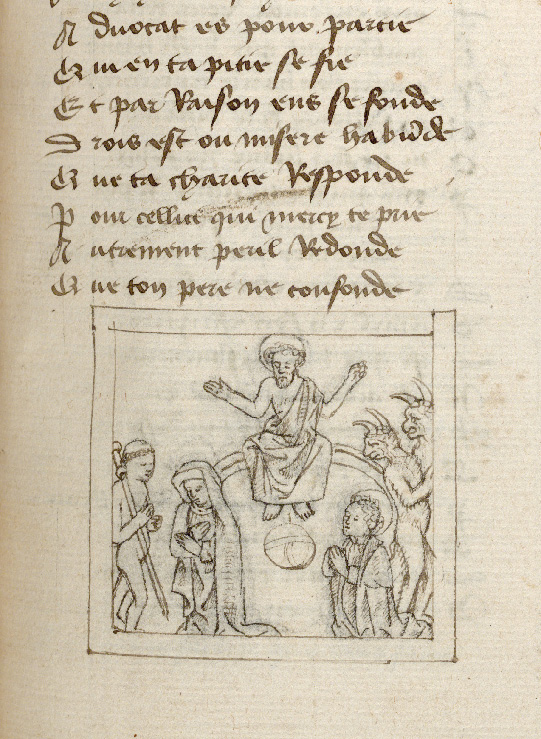 A duocat es pour partie
Q ui en ta pitie se fie
E t par Raison ens se fonde
D rois est ou misere habunde
Q ue ta charite Responde
P our cellui qui mercy te prie
A utrement peril Redonde
Q ue ton pere ne confonde